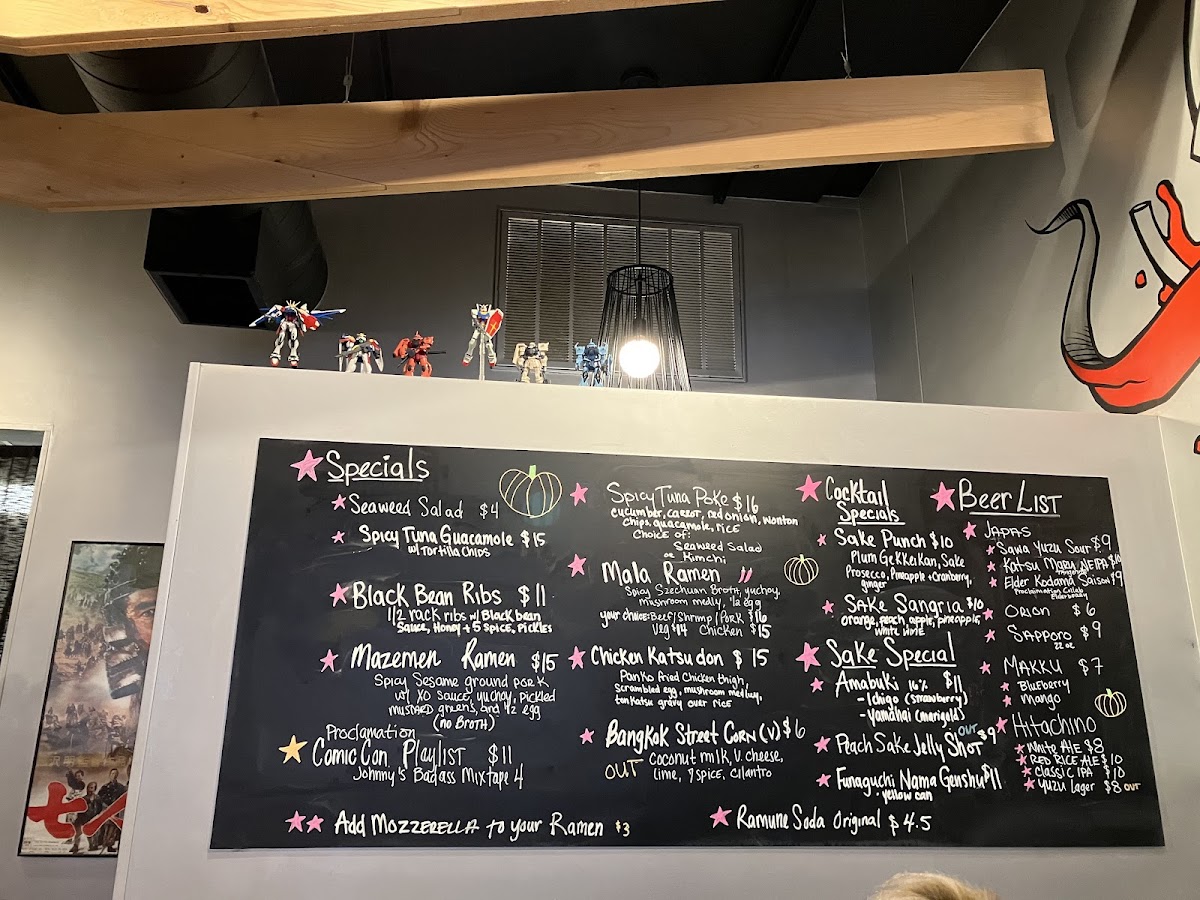 Specials
Seaweed Salad $4
Spicy Tuna Guacamole $15
w/ Tortilla Chips
Black Bean Ribs $11
1/2 rack ribs w/ Black bean
Sauce, Honey + 5 spice, Pickles
Mazemen Ramen $15
Spicy Sesame ground pork
w/ XO sauce, yuchoy, pickled
mustard greens, and 1/2 egg
(no Broth)
Proclamation
Comic Con Playlist $11
Johnny's Badass Mixtape 4
Add Mozzerella to your Ramen $3
Spicy Tuna Poke $16
cucumber, carrot, red onion, wonton
chips, guacamole, rice
Choice of:
Seaweed Salad
or Kimchi
Mala Ramen
Spicy Szechuan Broth, yuchoy,
mushroom medly, 1/2 egg
your choice: Beef/Shrimp/Pork $16
Veg $14 Chicken $15
Chicken Katsudon $15
Panko Fried Chicken thigh,
Scrambled egg, mushroom medley,
tonkatsu gravy over rice
Bangkok Street Corn (V) $6
OUT coconut milk, v. cheese,
lime, 7 spice, cilantro
Ramune Soda Original $4.5
Cocktail
Specials
Sake Punch $10
Plum Gekkeikan, Sake
Prosecco, Pineapple + Cranberry,
ginger
Sake Sangria $10
orange, peach, apple, pineapple,
white wine
Sake Special
Amabuki 16% $11
- Ichigo (strawberry)
- Yamahai (marigold)
OUT
Peach Sake Jelly Shot $9
Funaguchi Nama Genshu $11
- yellow can
Beer List
Japas
Sawa Yuzu Sour $9
Katsu Maru NEIPA $10
Elder Kodama Saison $9
Proclamation Collab
Orion $6
Sapporo $9
22 oz
Makku $7
Blueberry
Mango
Hitachino
White Ale $8
Red Rice Ale $10
Classic IPA $10
Yuzu Lager $8 OUT
七人